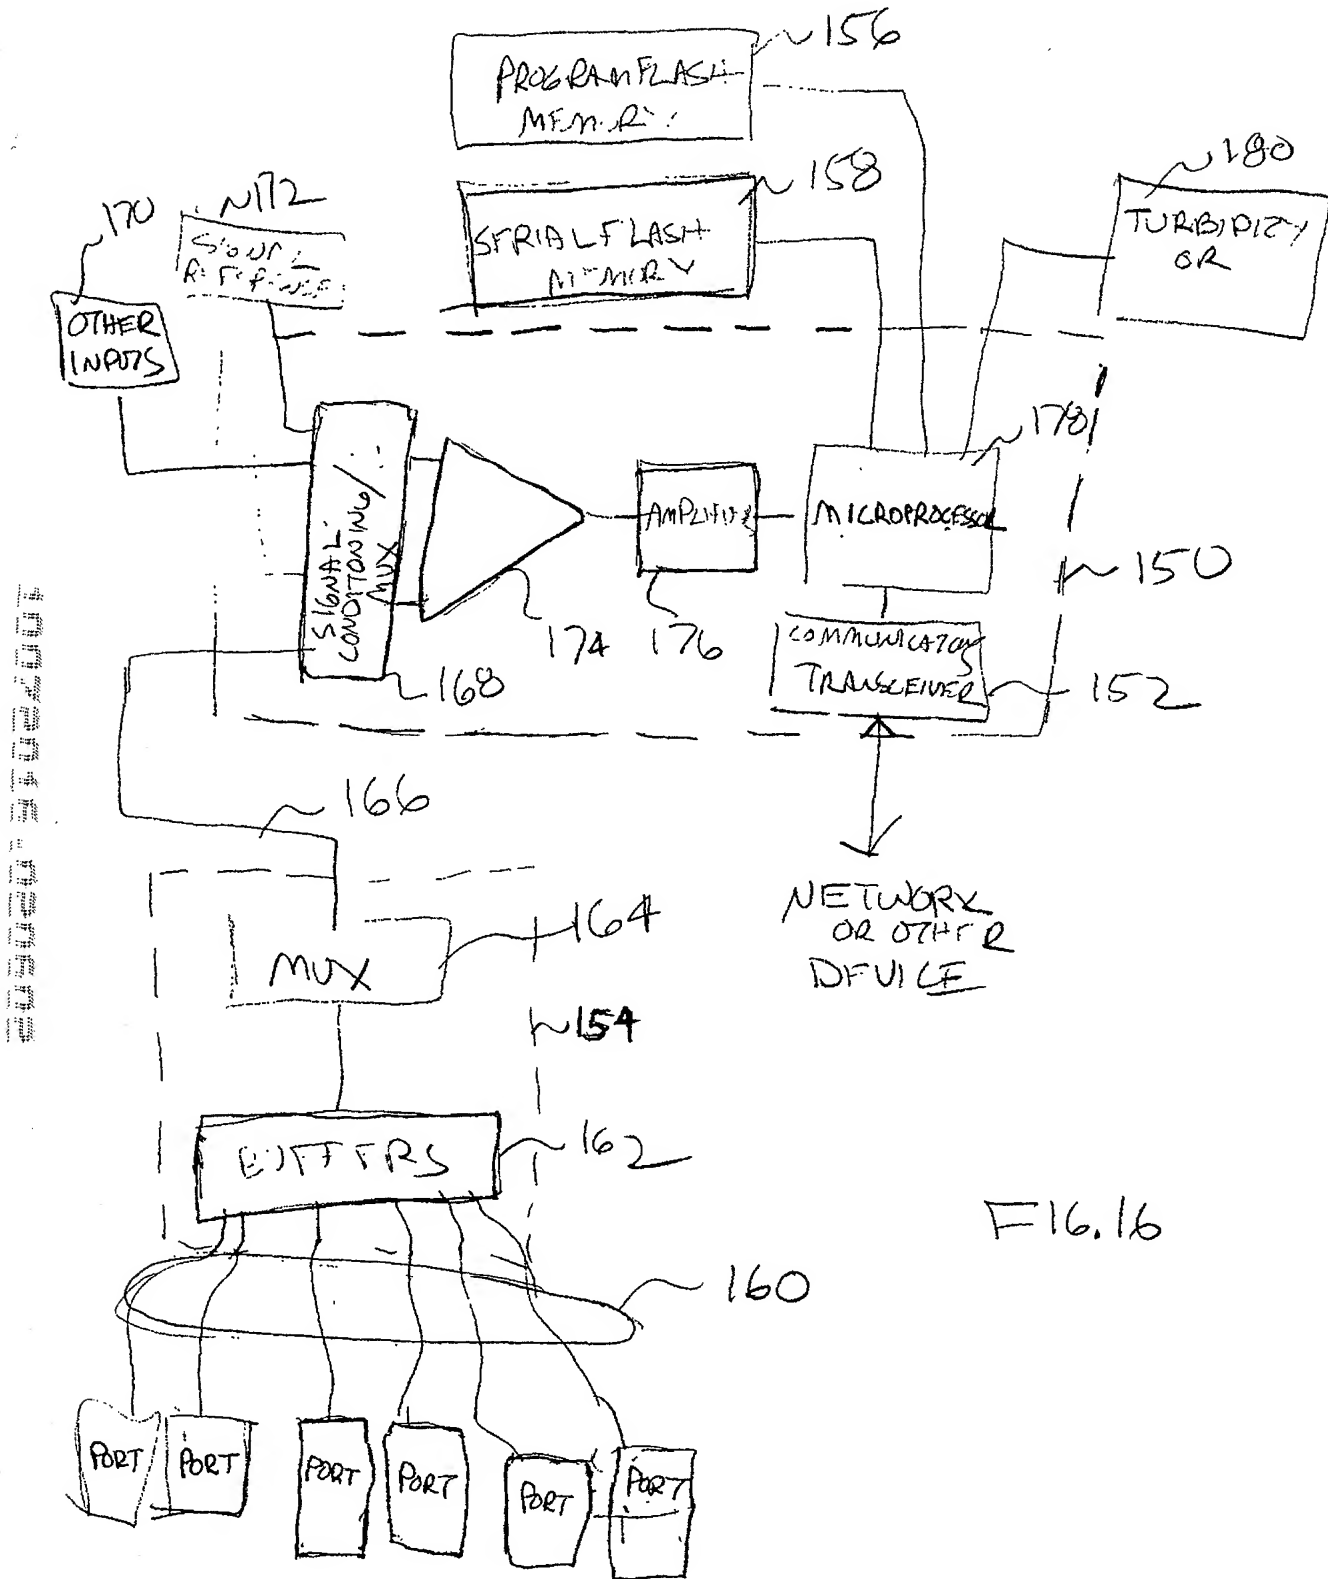 156
PROGRAM FLASH
MEMORY
158
SERIAL FLASH
MEMORY
180
TURBIDITY
OR
170
172
SIGNAL
REFERENCE
OTHER
INPUTS
178
SIGNAL
CONDITIONING/
MUX
AMPLIFIER
MICROPROCESSOR
150
174
176
168
COMMUNICATIONS
TRANSCEIVER
152
166
NETWORK
OR OTHER
DEVICE
164
MUX
154
BUFFERS
162
FIG.16
160
PORT
PORT
PORT
PORT
PORT
PORT